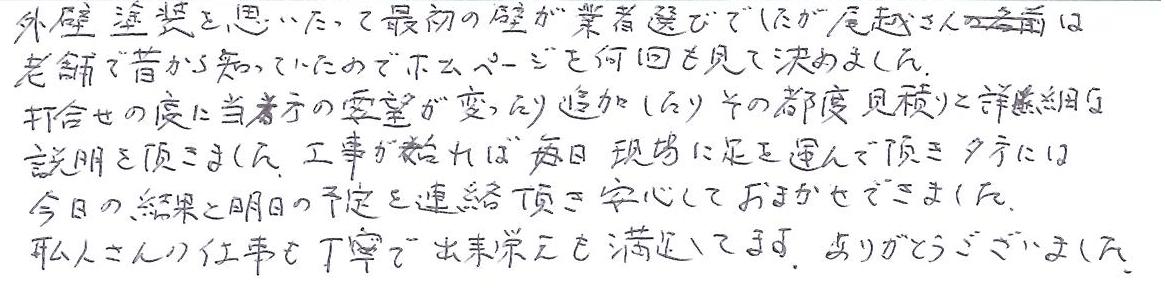 外壁塗装を思いたって最初の壁が業者選びでしたが尾越さんは
老舗で昔から知っていたのでホームページを何回も見て決めました。
打合せの度に当方の要望が変ったり追加したりその都度見積りと詳細な
説明を頂きました。工事が始れば毎日現場に足を運んで頂き夕方には
今日の結果と明日の予定を連絡頂き安心しておまかせできました。
職人さんの仕事も丁寧で出来栄えも満足してます。ありがとうございました。